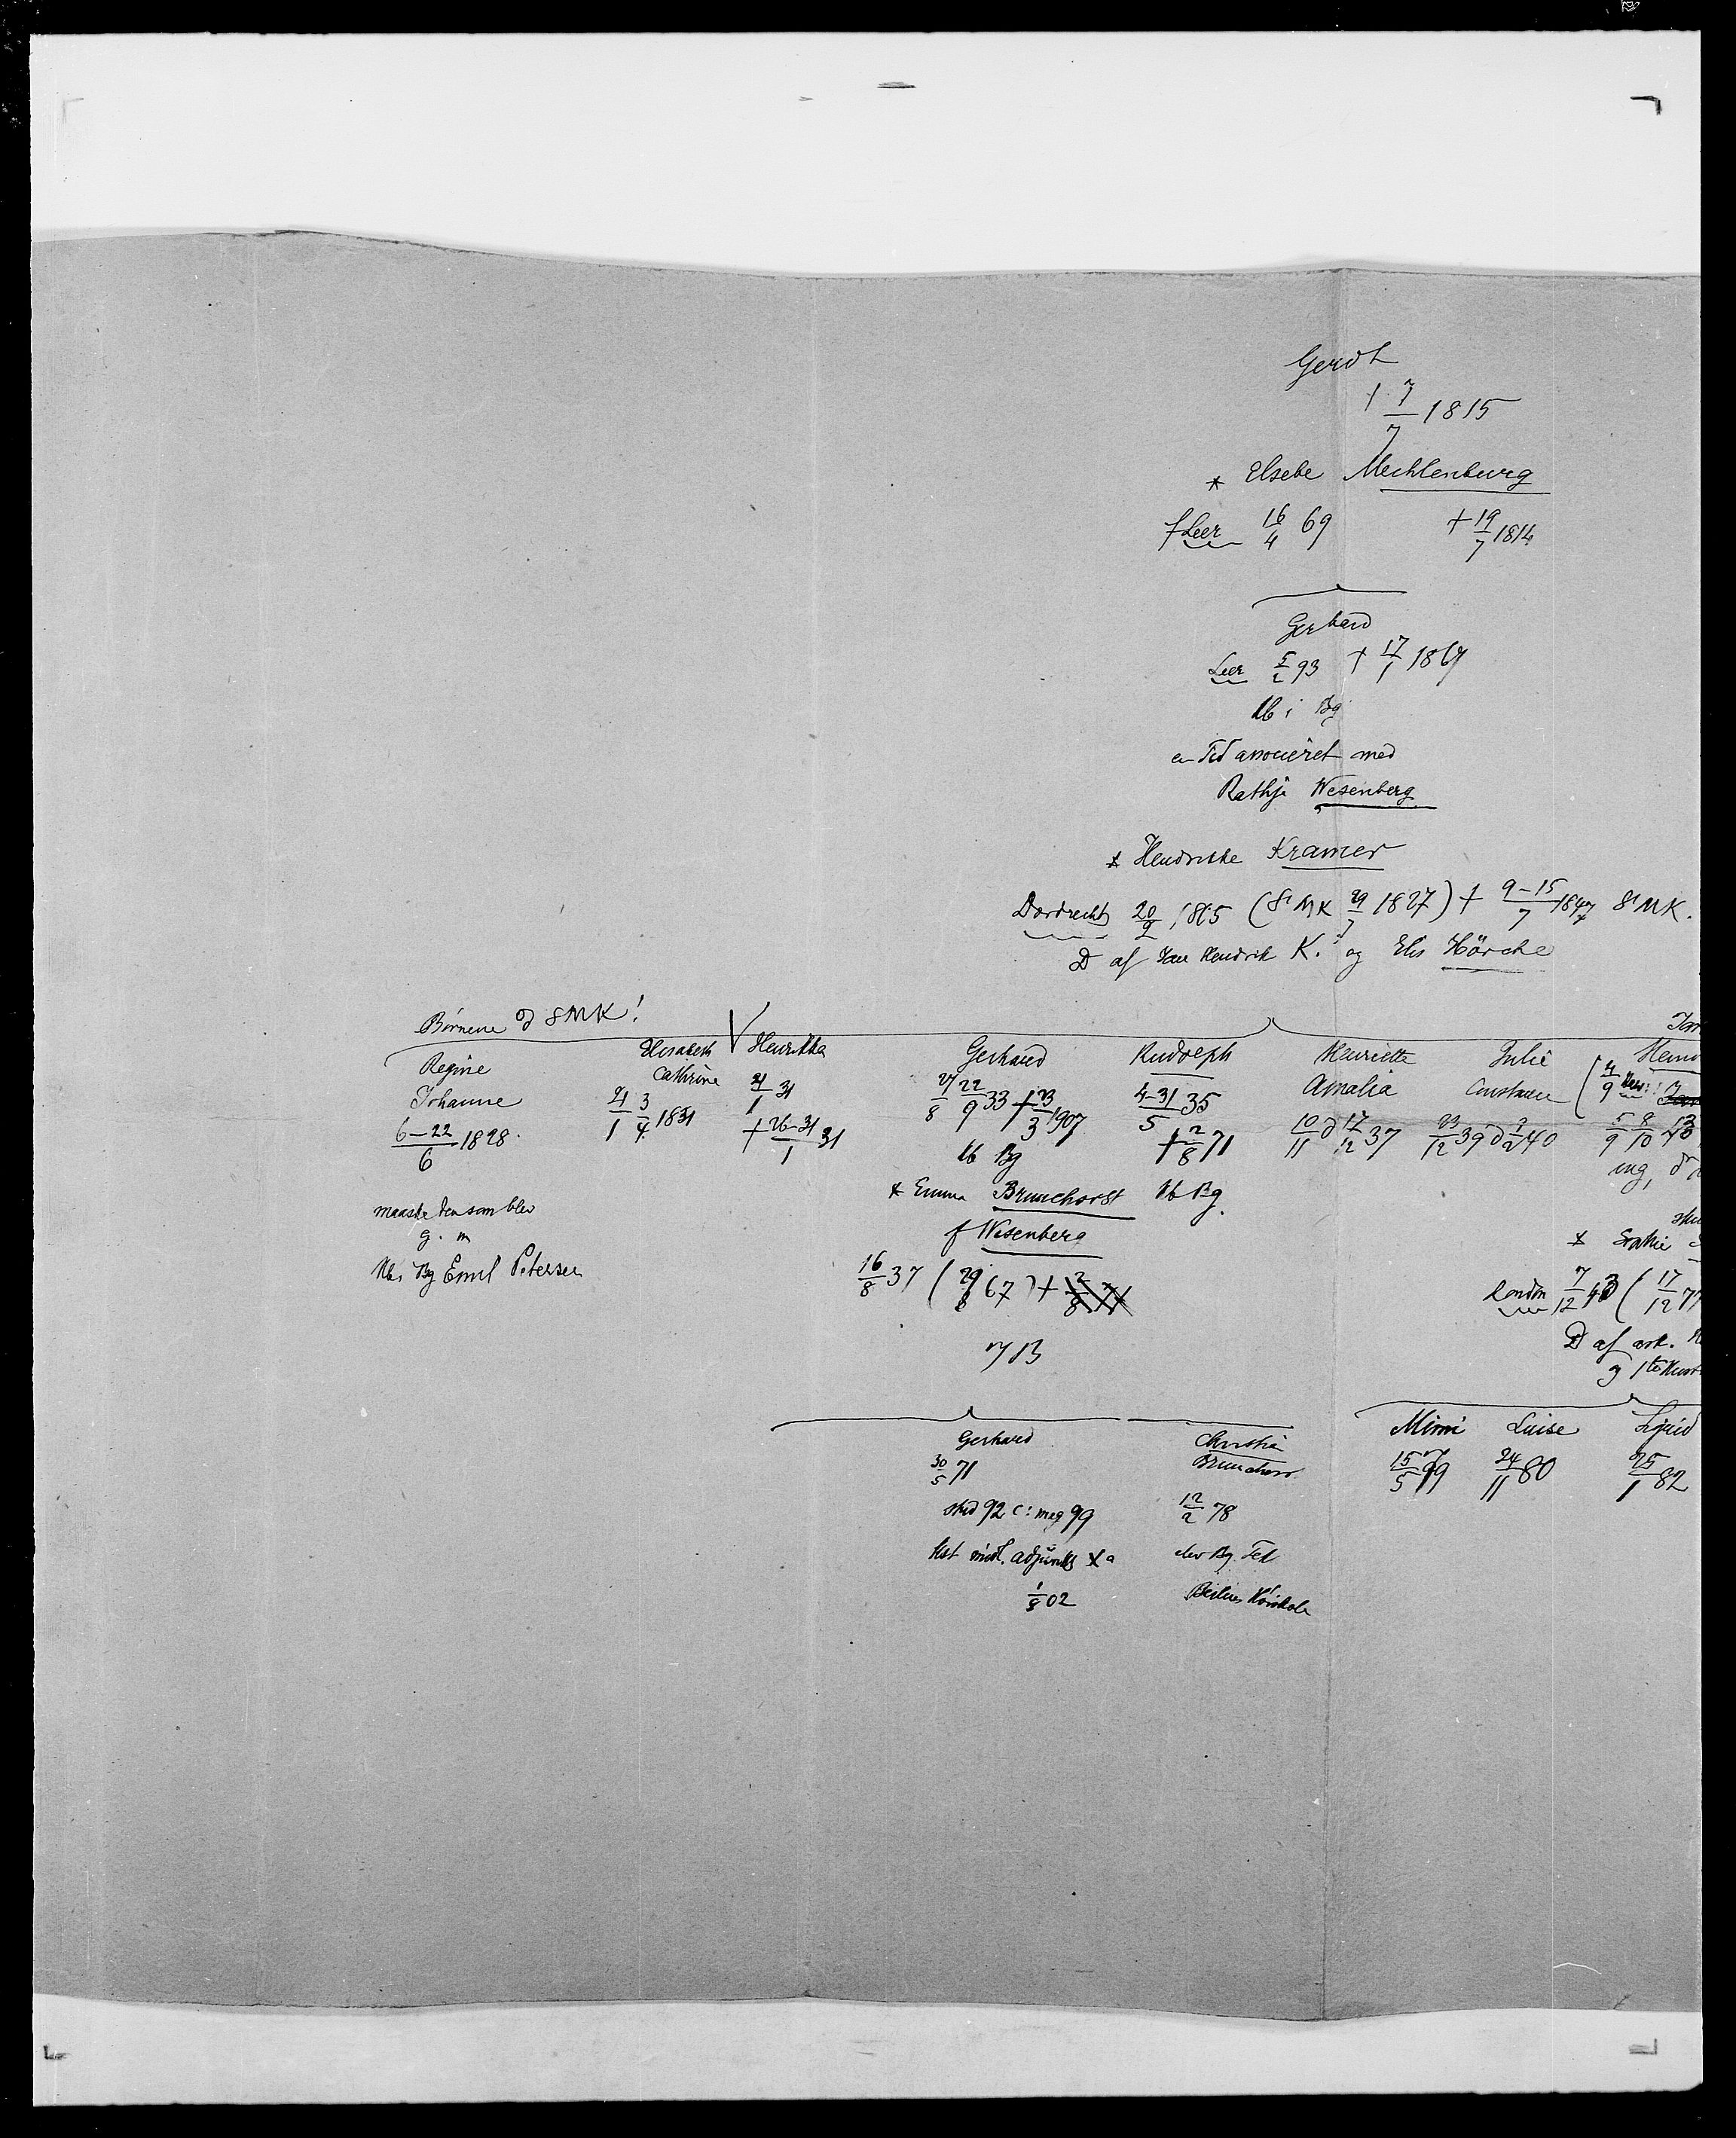 Gerdt
† 7/7 1815
* Elsebe Mechlenburg
f Leer 16/4 69 † 19/7 1814
Gerhard
Leer 5/2 93 † 17/1 1867
Kb i Bg
en Tid associeret med
Rathje Wesenberg
* Hendrikke Kramer
Dordrecht 20/2 1805 (St MK 29/7 1827) † 9-15/7 1847 St MK.
D af Jan Hendrik K. og Elis Hörche
Børnene d St MK!
Regine
Johanne
6-22/6 1828.
maaske den som blev
g. m
Kb i Bg Emil Petersen
Elisabeth
Cathrine
21/1 3/4 1831
Henrikka
21/1 31
† 26-31/1 31
Gerhard
27/8 22/9 33 † 23/3 1907
Kb Bg
* Emma Brunchorst
f Wesenberg
16/8 37 (29/8 67) † 2/8 71
7 B
Rudolph
4-31/5 35
† 2/8 71
Kb Bg.
Henriette
Amalia
10/11 d 17/12 37
Julie
Constance
23/12 39 d 2/2 40
5/9 8/10 43
ing,
London 7/12 43 (17/12 77
D af
og 1te
Gerhard
30/5 71
stud 92 c: mag 99
Kst adjunkt
1/8 02
Christia
Brunchorst
12/2 78
elev Bg. Tek
Mimi
15/5 79
Luise
24/11 80
25/1 82